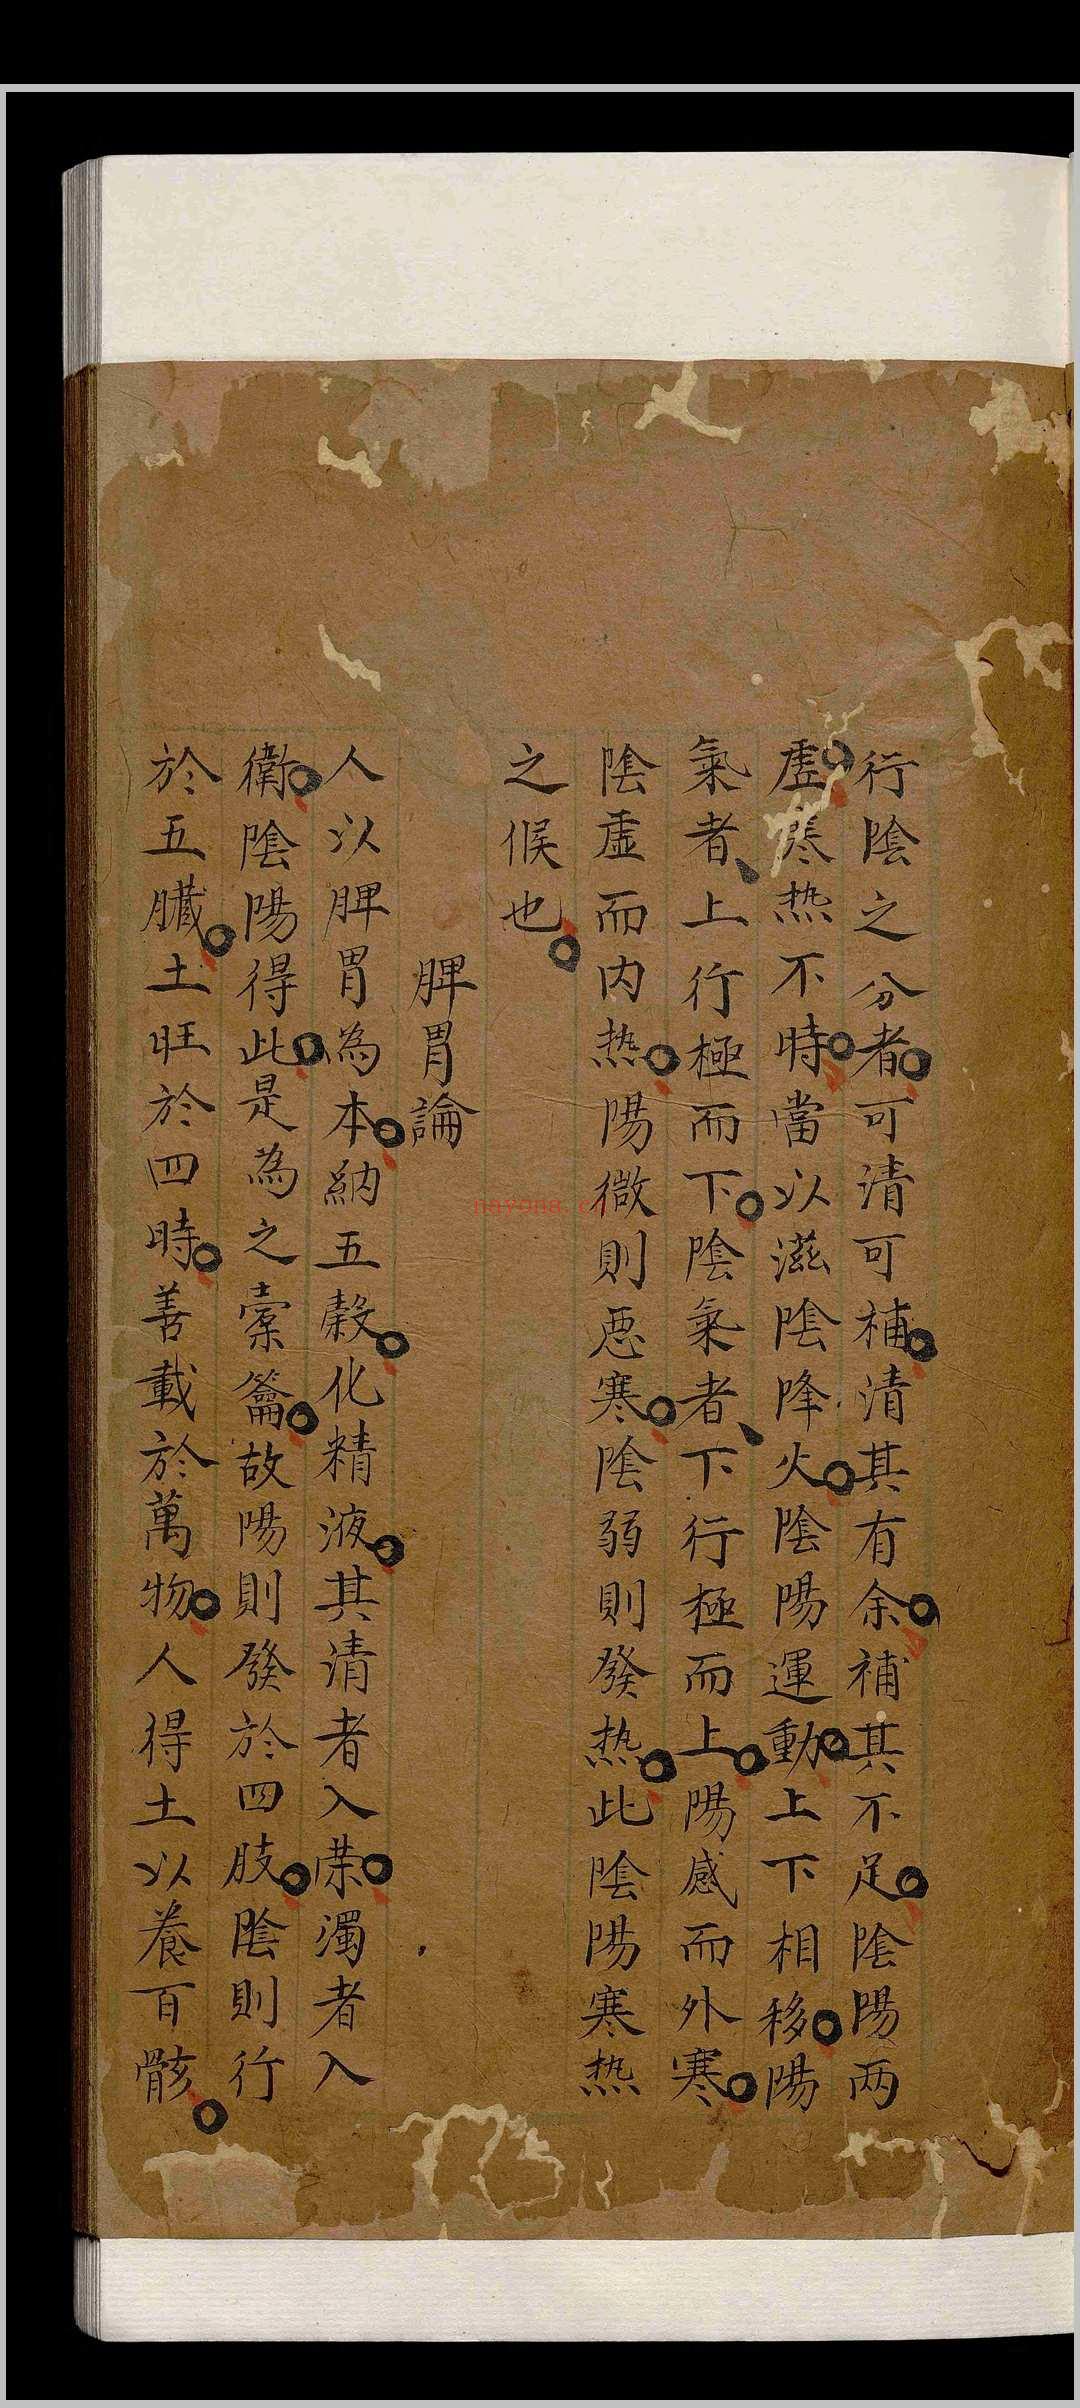 行陰之分者可清可補清其有余補其不足陰陽两
虚寒热不時當以滋陰降火陰陽運動上下相移陽
氣者上行極而下陰氣者下行極而上陽感而外寒
陰虚而内热陽微則恶寒陰弱則發热此陰陽寒热
之候也
脾胃論
人以脾胃為本納五穀化精液其清者入荣濁者入
衛陰陽得此是為之橐籥故陽則發於四肢陰則行
於五臓土旺於四時善載於萬物人得土以養百骸